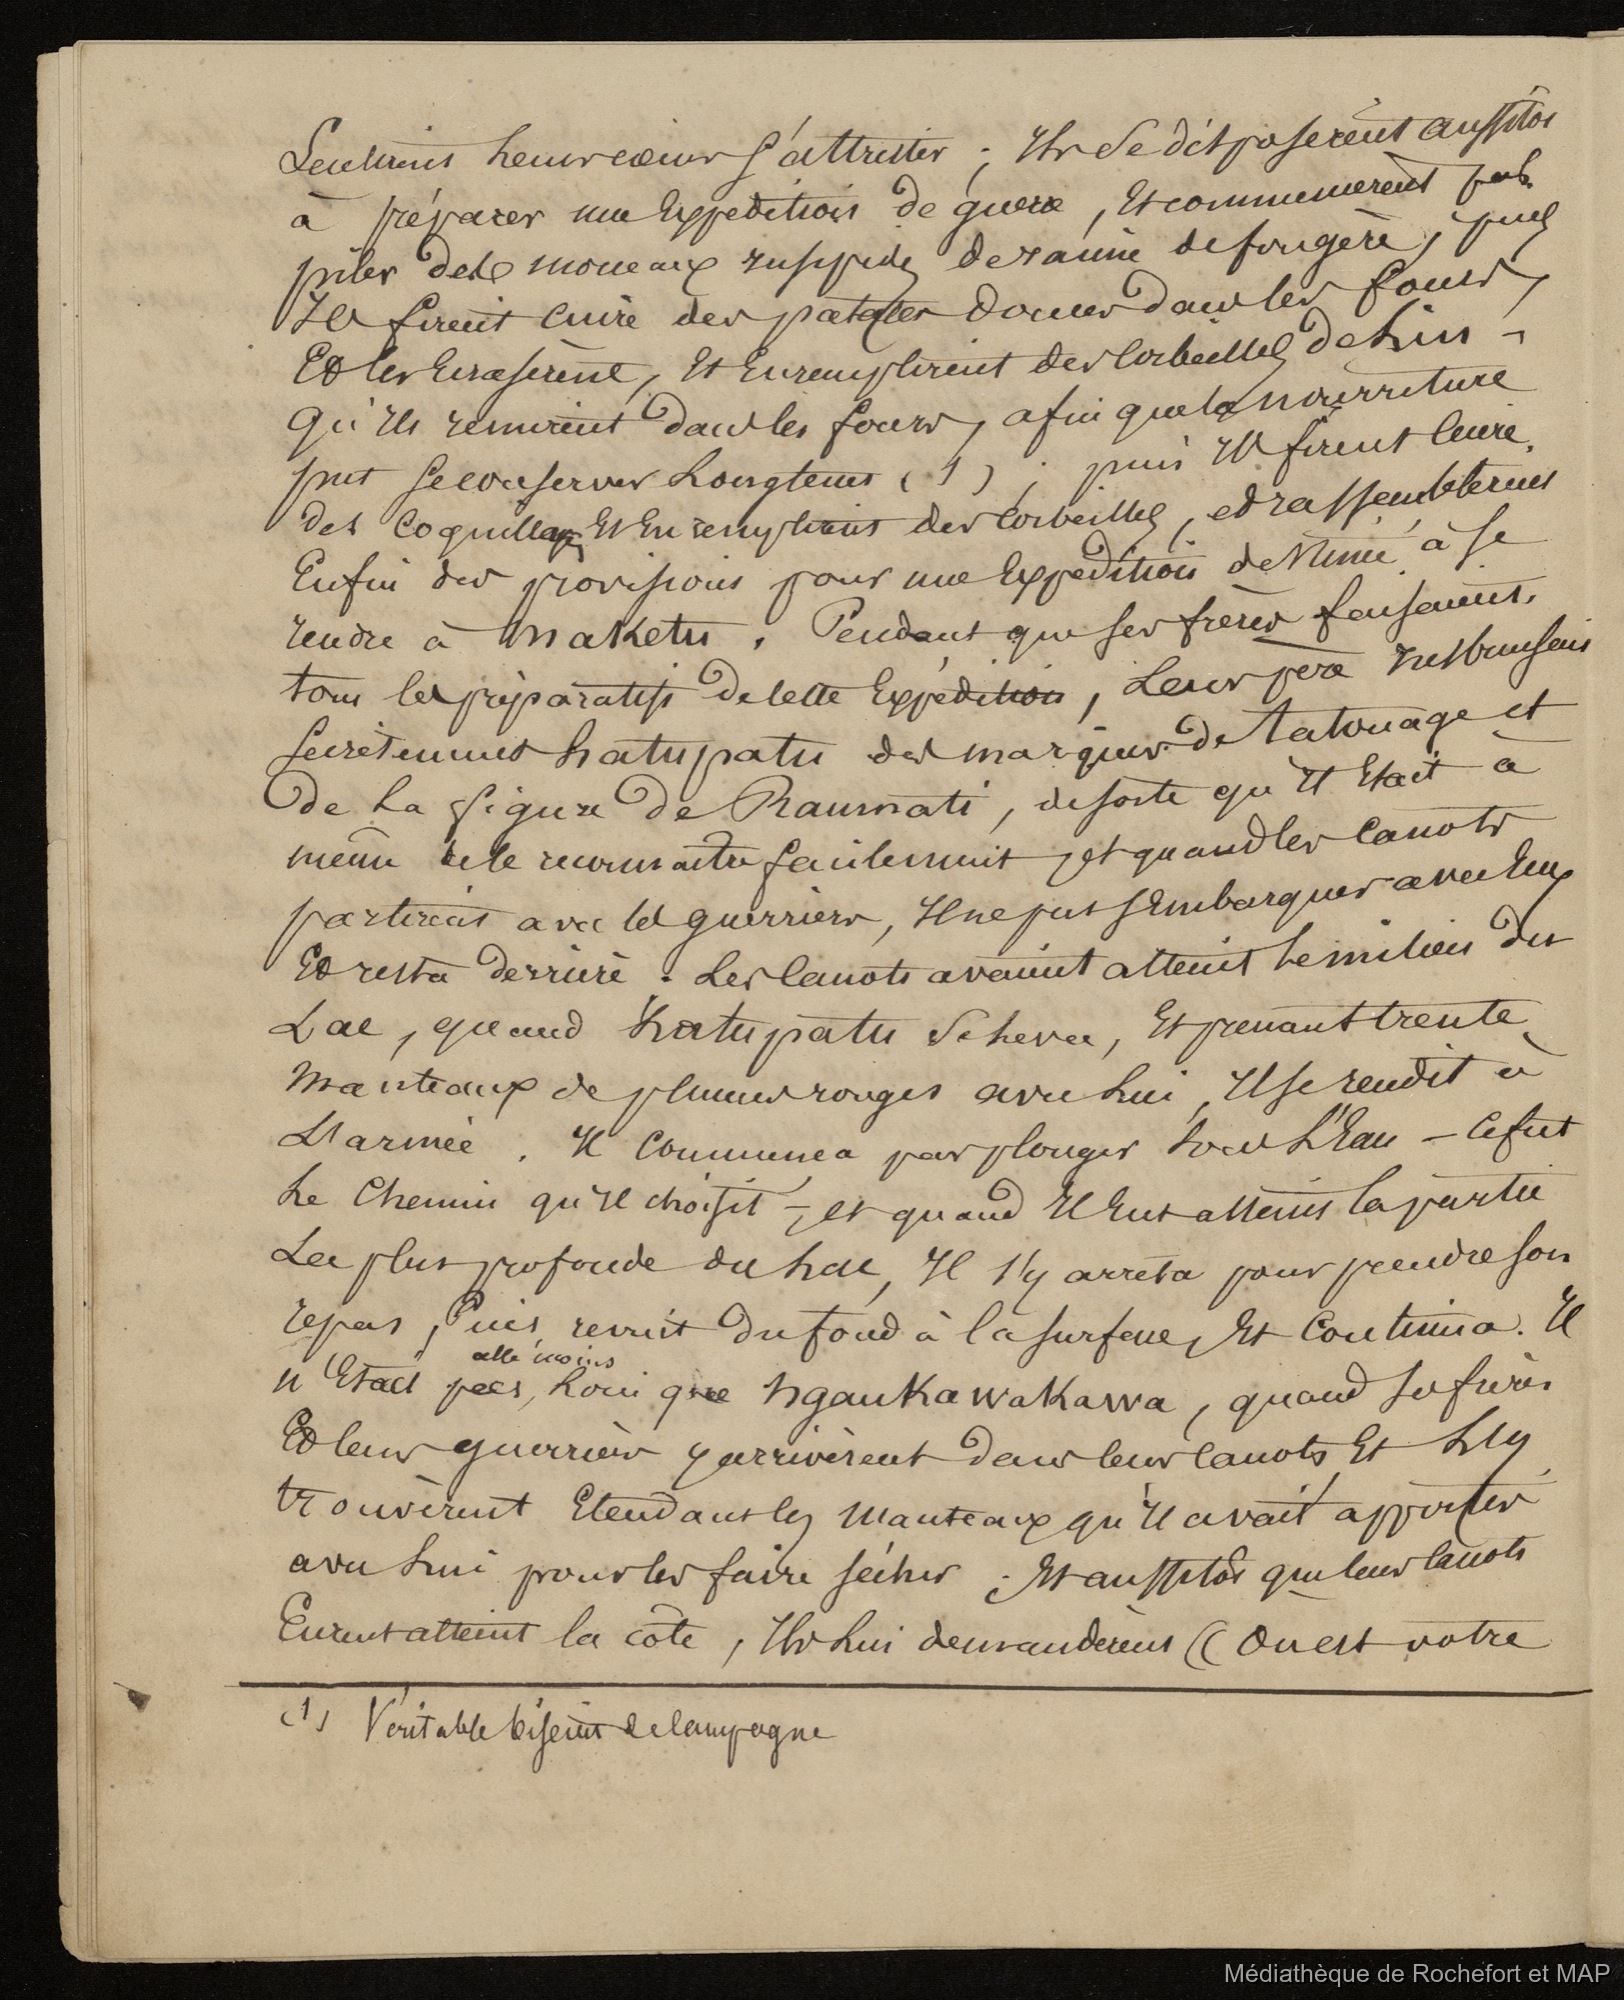 Sentirent leur cœur s'attrister ; Ils se disposerent aussitôt
à préparer une Expedition de guerre, Et commencerent par
piler des monceaux de racine de fougère, puis
Ils firent cuire des patates douces dans les fours,
Et les Ecraserent, Et En remplirent des Corbeilles de lin -
qu'Ils remirent dans les fours, afin que la nourriture
put se conserver Longtems (1) ; puis Ils firent Cuire
des Coquillages Et En remplirent des Corbeilles, et rassemblerent
Enfin des provisions pour une Expedition destinée à se
rendre à Maketu. Pendant que ses frères faisaient
tous les préparatifs de cette Expédition, Leur père
secrètement hatupatu des marques de Tatouage et
de La figure de Raumati, de sorte qu'Il Etait à
même de le reconnaitre facilement, et quand les Canots
partirent avec les guerriers, Il ne put s'Embarquer avec Eux
Et resta derrière. Les Canots avaient atteint Le milieu du
Lac, quand hatupatu se Leva, Et prenant trente
Manteaux de plumes rouges avec Lui, Il se rendit à
L'armée. Il Commença par plonger sous L'Eau - Ce fut
Le Chemin qu'Il choisit -, et quand Il Eut atteint la partie
La plus profonde du Lac, Il s'y arrêta pour prendre son
repas, Puis revint du fond à la surface, Et Continua. Il
n'Etait pas allé moins Loin que Ngaukawakawa, quand ses frères
Et leurs guerriers y arrivèrent dans leurs Canots Et L'y
trouvèrent Etendant les Manteaux qu'Il avait apportés
avec Lui pour les faire sécher. Et aussitôt que leurs Canots
Eurent atteint la côte, Ils Lui demandèrent (( Ou est votre
(1) Véritable biscuit de Campagne
Médiathèque de Rochefort et MAP